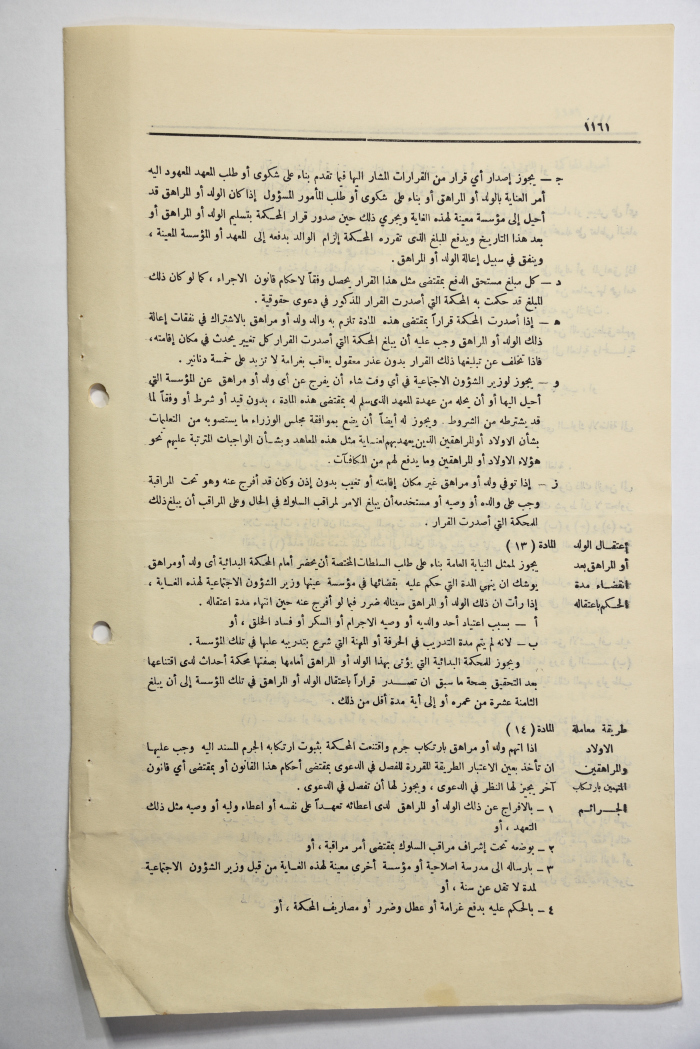 ١١٦١
جـ — يجوز إصدار أي قرار من القرارات المشار اليها فيما تقدم بناء على شكوى أو طلب المعهد المعهود اليه
أمر العناية بالولد أو المراهق أو بناء على شكوى أو طلب المأمور المسؤول إذا كان الولد أو المراهق قد
أحيل إلى مؤسسة معينة لهذه الغاية ويجري ذلك حين صدور قرار المحكمة بتسليم الولد أو المراهق أو
بعد هذا التاريخ ويدفع المبلغ الذى تقرره المحكمة إلزام الوالد بدفعه إلى المعهد أو المؤسسة المعينة ،
وينفق في سبيل إعالة الولد أو المراهق .
د — كل مبلغ مستحق الدفع بمقتضى مثل هذا القرار يحصل وفقاً لاحكام قانون الاجراء ، كما لو كان ذلك
المبلغ قد حكمت به المحكمة التي أصدرت القرار المذكور في دعوى حقوقية .
هـ — إذا أصدرت المحكمة قراراً بمقتضى هذه المادة تلزم به والد ولد أو مراهق بالاشتراك في نفقات إعالة
ذلك الولد أو المراهق وجب عليه أن يبلغ المحكمة التي أصدرت القرار كل تغيير يحدث في مكان إقامته،
فاذا تخلف عن تبليغها ذلك القرار بدون عذر معقول يعاقب بغرامة لا تزيد على خمسة دنانير .
و — يجوز لوزير الشؤون الاجتماعية في أي وقت شاء أن يفرج عن أى ولد أو مراهق عن المؤسسة التي
أحيل اليها أو أن يحله من عهدة المعهد الذى سلم له بمقتضى هذه المادة ، بدون قيد أو شرط أو وفقاً لما
قد يشترطه من الشروط . ويجوز له أيضاً أن يضع بموافقة مجلس الوزراء ما يستصوبه من التعليمات
بشأن الاولاد أو المراهقين الذين يعهد بهم لعناية مثل هذه المعاهد وبشأن الواجبات المترتبة عليهم نحو
هؤلاء الاولاد أو المراهقين وما يدفع لهم من المكافآت .
ز — إذا توفي ولد أو مراهق غير مكان إقامته أو تغيب بدون إذن وكان قد أفرج عنه وهو تحت المراقبة
وجب على والده أو وصيه أو مستخدمه أن يبلغ الامر لمراقب السلوك في الحال وعلى المراقب أن يبلغ ذلك
للمحكمة التي أصدرت القرار .
إعتقال الولد
أو المراهق بعد
انقضاء مدة
الحكم باعتقاله
المادة ( ١٣ )
يجوز لممثل النيابة العامة بناء على طلب السلطات المختصة أن يحضر أمام المحكمة البدائية أى ولد أو مراهق
يوشك ان ينهي المدة التي حكم عليه بقضائها في مؤسسة عينها وزير الشؤون الاجتماعية لهذه الغاية ،
إذا رأت ان ذلك الولد أو المراهق سيناله ضرر فيما لو أفرج عنه حين انتهاء مدة اعتقاله .
أ — بسبب اعتياد أحد والديه أو وصيه الاجرام أو السكر أو فساد الخلق ، أو
ب — لانه لم يتم مدة التدريب في الحرفة أو المهنة التي شرع بتدريبه عليها في تلك المؤسسة .
ويجوز للمحكمة البدائية التي يؤتى بهذا الولد أو المراهق أمامها بصفتها محكمة أحداث لدى اقتناعها
بعد التحقيق بصحة ما سبق ان تصدر قراراً باعتقال الولد أو المراهق في تلك المؤسسة إلى أن يبلغ
الثامنة عشرة من عمره أو إلى أية مدة أقل من ذلك .
طريقة معاملة
الاولاد
والمراهقين
المتهمين بارتكاب
الجرائم
المادة ( ١٤ )
اذا اتهم ولد أو مراهق بارتكاب جرم واقتنعت المحكمة بثبوت ارتكابه الجرم المسند اليه وجب عليها
ان تأخذ بعين الاعتبار الطريقة المقررة للفصل في الدعوى بمقتضى أحكام هذا القانون أو بمقتضى أي قانون
آخر يجيز لها النظر في الدعوى ، ويجوز لها أن تفصل في الدعوى .
١ — بالافراج عن ذلك الولد أو المراهق لدى اعطائه تعهداً على نفسه أو اعطاء وليه أو وصيه مثل ذلك
التعهد ، أو
٢ — بوضعه تحت إشراف مراقب السلوك بمقتضى أمر مراقبة ، أو
٣ — بارساله الى مدرسة اصلاحية أو مؤسسة أخرى معينة لهذه الغاية من قبل وزير الشؤون الاجتماعية
لمدة لا تقل عن سنة ، أو
٤ — بالحكم عليه بدفع غرامة أو عطل وضرر أو مصاريف المحكمة ، أو